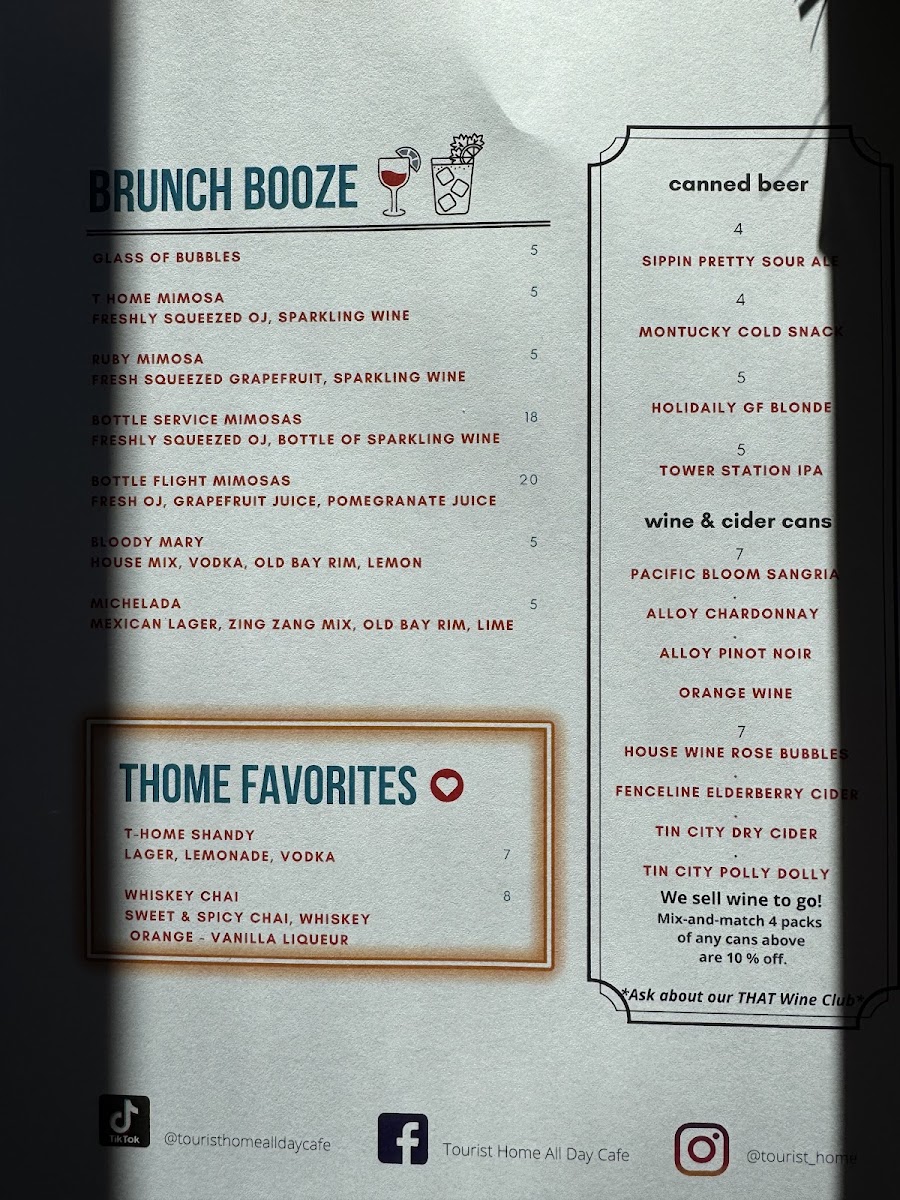 BRUNCH BOOZE
GLASS OF BUBBLES 5
T HOME MIMOSA 5
FRESHLY SQUEEZED OJ, SPARKLING WINE
RUBY MIMOSA 5
FRESH SQUEEZED GRAPEFRUIT, SPARKLING WINE
BOTTLE SERVICE MIMOSAS 18
FRESHLY SQUEEZED OJ, BOTTLE OF SPARKLING WINE
BOTTLE FLIGHT MIMOSAS 20
FRESH OJ, GRAPEFRUIT JUICE, POMEGRANATE JUICE
BLOODY MARY 5
HOUSE MIX, VODKA, OLD BAY RIM, LEMON
MICHELADA 5
MEXICAN LAGER, ZING ZANG MIX, OLD BAY RIM, LIME
THOME FAVORITES
T-HOME SHANDY
LAGER, LEMONADE, VODKA 7
WHISKEY CHAI 8
SWEET & SPICY CHAI, WHISKEY
ORANGE - VANILLA LIQUEUR
canned beer
4
SIPPIN PRETTY SOUR ALE
4
MONTUCKY COLD SNACK
5
HOLIDAILY GF BLONDE
5
TOWER STATION IPA
wine & cider cans
7
PACIFIC BLOOM SANGRIA
.
ALLOY CHARDONNAY
.
ALLOY PINOT NOIR
ORANGE WINE
7
HOUSE WINE ROSE BUBBLES
.
FENCELINE ELDERBERRY CIDER
.
TIN CITY DRY CIDER
.
TIN CITY POLLY DOLLY
We sell wine to go!
Mix-and-match 4 packs
of any cans above
are 10 % off.
*Ask about our THAT Wine Club*
TikTok
@touristhomealldaycafe
Tourist Home All Day Cafe
@tourist_home